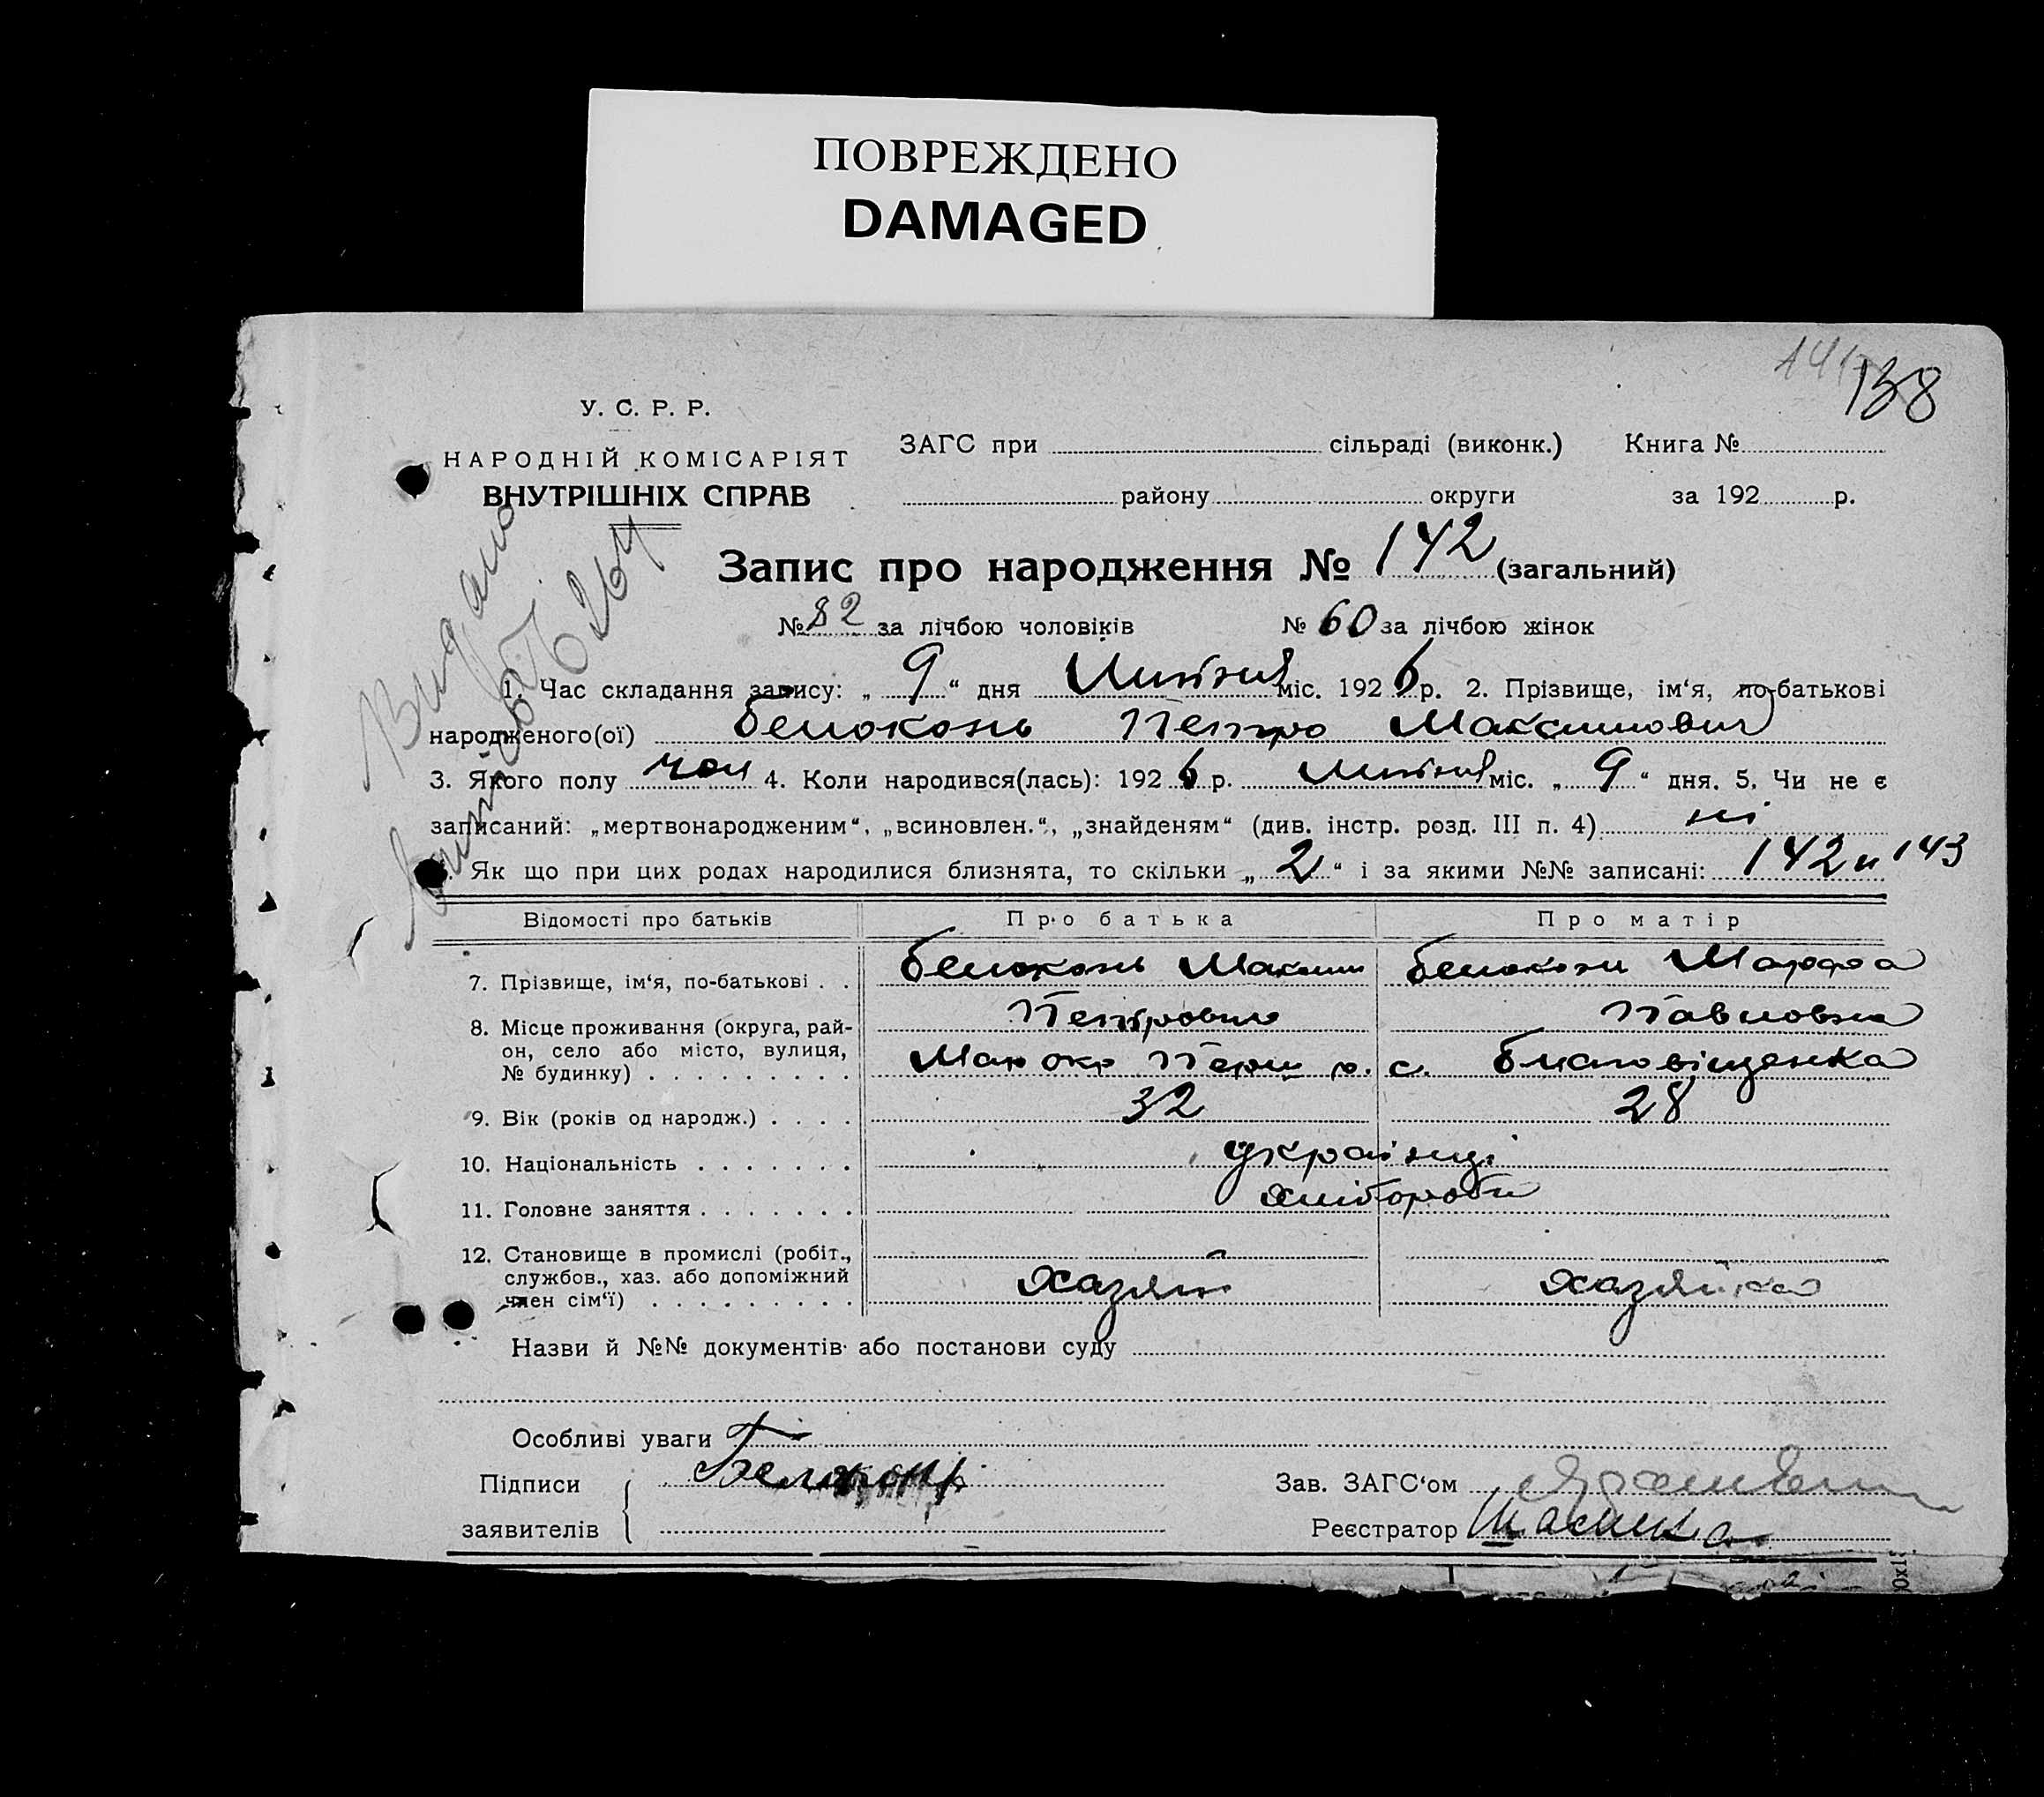 ПОВРЕЖДЕНО
DAMAGED
138
У. С. Р. Р.
НАРОДНІЙ КОМІСАРІЯТ
ВНУТРІШНІХ СПРАВ
ЗАГС при сільраді (виконк.) Книга №
району округи за 192 р.
Запис про народження № 142 (загальний)
№ 82 за лічбою чоловіків № 60 за лічбою жінок
Видано
1. Час складання запису: „ 9 “ дня Липня міс. 1926 р. 2. Прізвище, ім‘я, по-батькові
народженого(ої) Белоконь Петро Максимович
3. Якого полу чол 4. Коли народився(лась): 1926 р. липня міс. „ 9 “ дня. 5. Чи не є
записаний: „мертвонародженим“, „всиновлен.“, „знайденям“ (див. інстр. розд. III п. 4) ні
. Як що при цих родах народилися близнята, то скільки „ 2 “ і за якими №№ записані: 142 и 143
Відомості про батьків Про батька Про матір
7. Прізвище, ім‘я, по-батькові . . Белоконь Максим Белоконь Марфа
Петрович Павловна
8. Місце проживання (округа, рай-
он, село або місто, вулиця,
№ будинку) . . . . . . . . . Мар окр Перш р. с. Благовіщенка
9. Вік (років од народж.) . . . . 32 28
10. Національність . . . . . . . українці
11. Головне заняття . . . . . . . хлібороби
12. Становище в промислі (робіт.,
службов., хаз. або допоміжний
член сім‘ї) . . . . . . . . . хазяїн хазяйка
Назви й №№ документів або постанови суду
Особливі уваги
Підписи Белоконь
заявителів
Зав. ЗАГС‘ом
Реєстратор